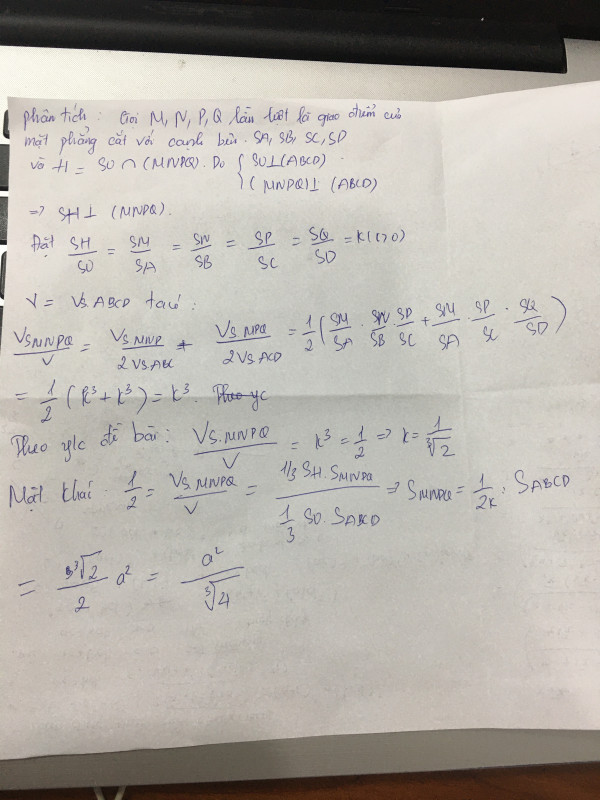 phân tích: Gọi M, N, P, Q lần lượt là giao điểm của
mặt phẳng cắt với cạnh bên SA, SB, SC, SD
và H = SO ∩ (MNPQ). Do { SO⊥(ABCD)
(MNPQ)⊥ (ABCD)
=> SH⊥ (MNPQ).
Đặt SH/SO = SM/SA = SN/SB = SP/SC = SQ/SD = K (>0)
V = VS.ABCD ta có:
VS.MNPQ/V = VS.MNP/2VS.ABC + VS.MPQ/2VS.ACD = 1/2 (SM/SA . SN/SB . SP/SC + SM/SA . SP/SC . SQ/SD)
= 1/2 (K³ + K³) = K³. Theo yc
Theo y/c đề bài: VS.MNPQ/V = K³ = 1/2 => K = 1/∛2
Mặt khác 1/2 = VS.MNPQ/V = 1/3 SH. SMNPQ / 1/3 SO. SABCD => SMNPQ = 1/2K . SABCD
= ∛2/2 a² = a²/∛4